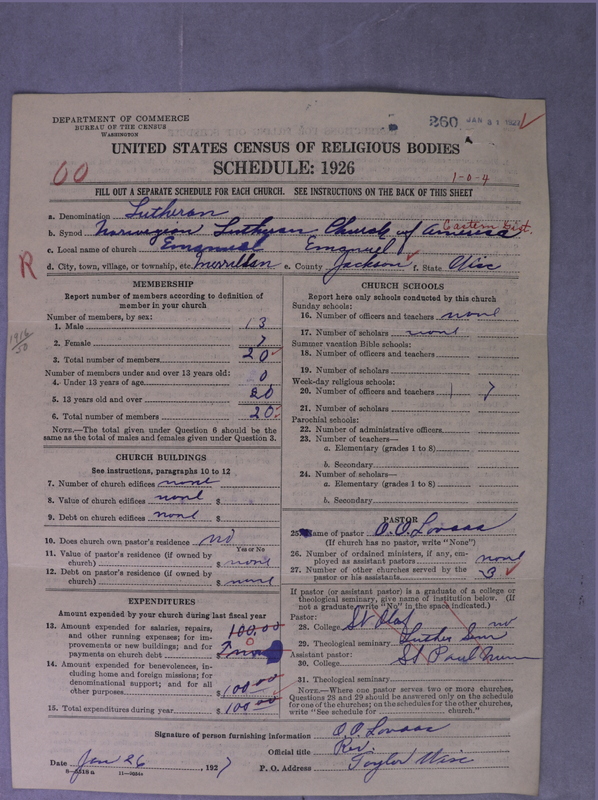 DEPARTMENT OF COMMERCE
BUREAU OF THE CENSUS
WASHINGTON
260 JAN 31 1927
UNITED STATES CENSUS OF RELIGIOUS BODIES
SCHEDULE: 1926
1-0-4
FILL OUT A SEPARATE SCHEDULE FOR EACH CHURCH. SEE INSTRUCTIONS ON THE BACK OF THIS SHEET
a. Denomination Lutheran
b. Synod Norwegian Lutheran Church of America Eastern Dist.
c. Local name of church Emanuel Emanuel
d. City, town, village, or township, etc. Merrillan e. County Jackson f. State Wisc
R
1916
MEMBERSHIP
Report number of members according to definition of
member in your church
Number of members, by sex:
1. Male 13
2. Female 7
3. Total number of members 20
Number of members under and over 13 years old:
4. Under 13 years of age 0
5. 13 years old and over 20
6. Total number of members 20
NOTE.—The total given under Question 6 should be the
same as the total of males and females given under Question 3.
CHURCH BUILDINGS
See instructions, paragraphs 10 to 12
7. Number of church edifices none
8. Value of church edifices none $
9. Debt on church edifices none $
10. Does church own pastor's residence? no
Yes or No
11. Value of pastor's residence (if owned by
church) $ none
12. Debt on pastor's residence (if owned by
church) $ none
EXPENDITURES
Amount expended by your church during last fiscal year
13. Amount expended for salaries, repairs,
and other running expenses; for im-
provements or new buildings; and for
payments on church debt $ none
100.00
14. Amount expended for benevolences, in-
cluding home and foreign missions; for
denominational support; and for all
other purposes $ 100.00
15. Total expenditures during year $ 100.00
CHURCH SCHOOLS
Report here only schools conducted by this church
Sunday schools:
16. Number of officers and teachers none
17. Number of scholars none
Summer vacation Bible schools:
18. Number of officers and teachers
19. Number of scholars
Week-day religious schools:
20. Number of officers and teachers 1 7
21. Number of scholars
Parochial schools:
22. Number of administrative officers
23. Number of teachers—
a. Elementary (grades 1 to 8)
b. Secondary
24. Number of scholars—
a. Elementary (grades 1 to 8)
b. Secondary
PASTOR
25. Name of pastor O. O. Lovaas
(If church has no pastor, write "None")
26. Number of ordained ministers, if any, em-
ployed as assistant pastors none
27. Number of other churches served by the
pastor or his assistants 3
If pastor (or assistant pastor) is a graduate of a college or
theological seminary, give name of institution below. (If
not a graduate write "No" in the space indicated.)
Pastor:
28. College St Olaf no
29. Theological seminary Luther Sem
Assistant pastor: St Paul Minn
30. College
31. Theological seminary
NOTE.—Where one pastor serves two or more churches,
Questions 28 and 29 should be answered only on the schedule
for one of the churches; on the schedules for the other churches,
write "See schedule for church."
Signature of person furnishing information O. O. Lovaas
Official title Rev.
Date Jan 26, 1927 P. O. Address Taylor Wisc
11—9554